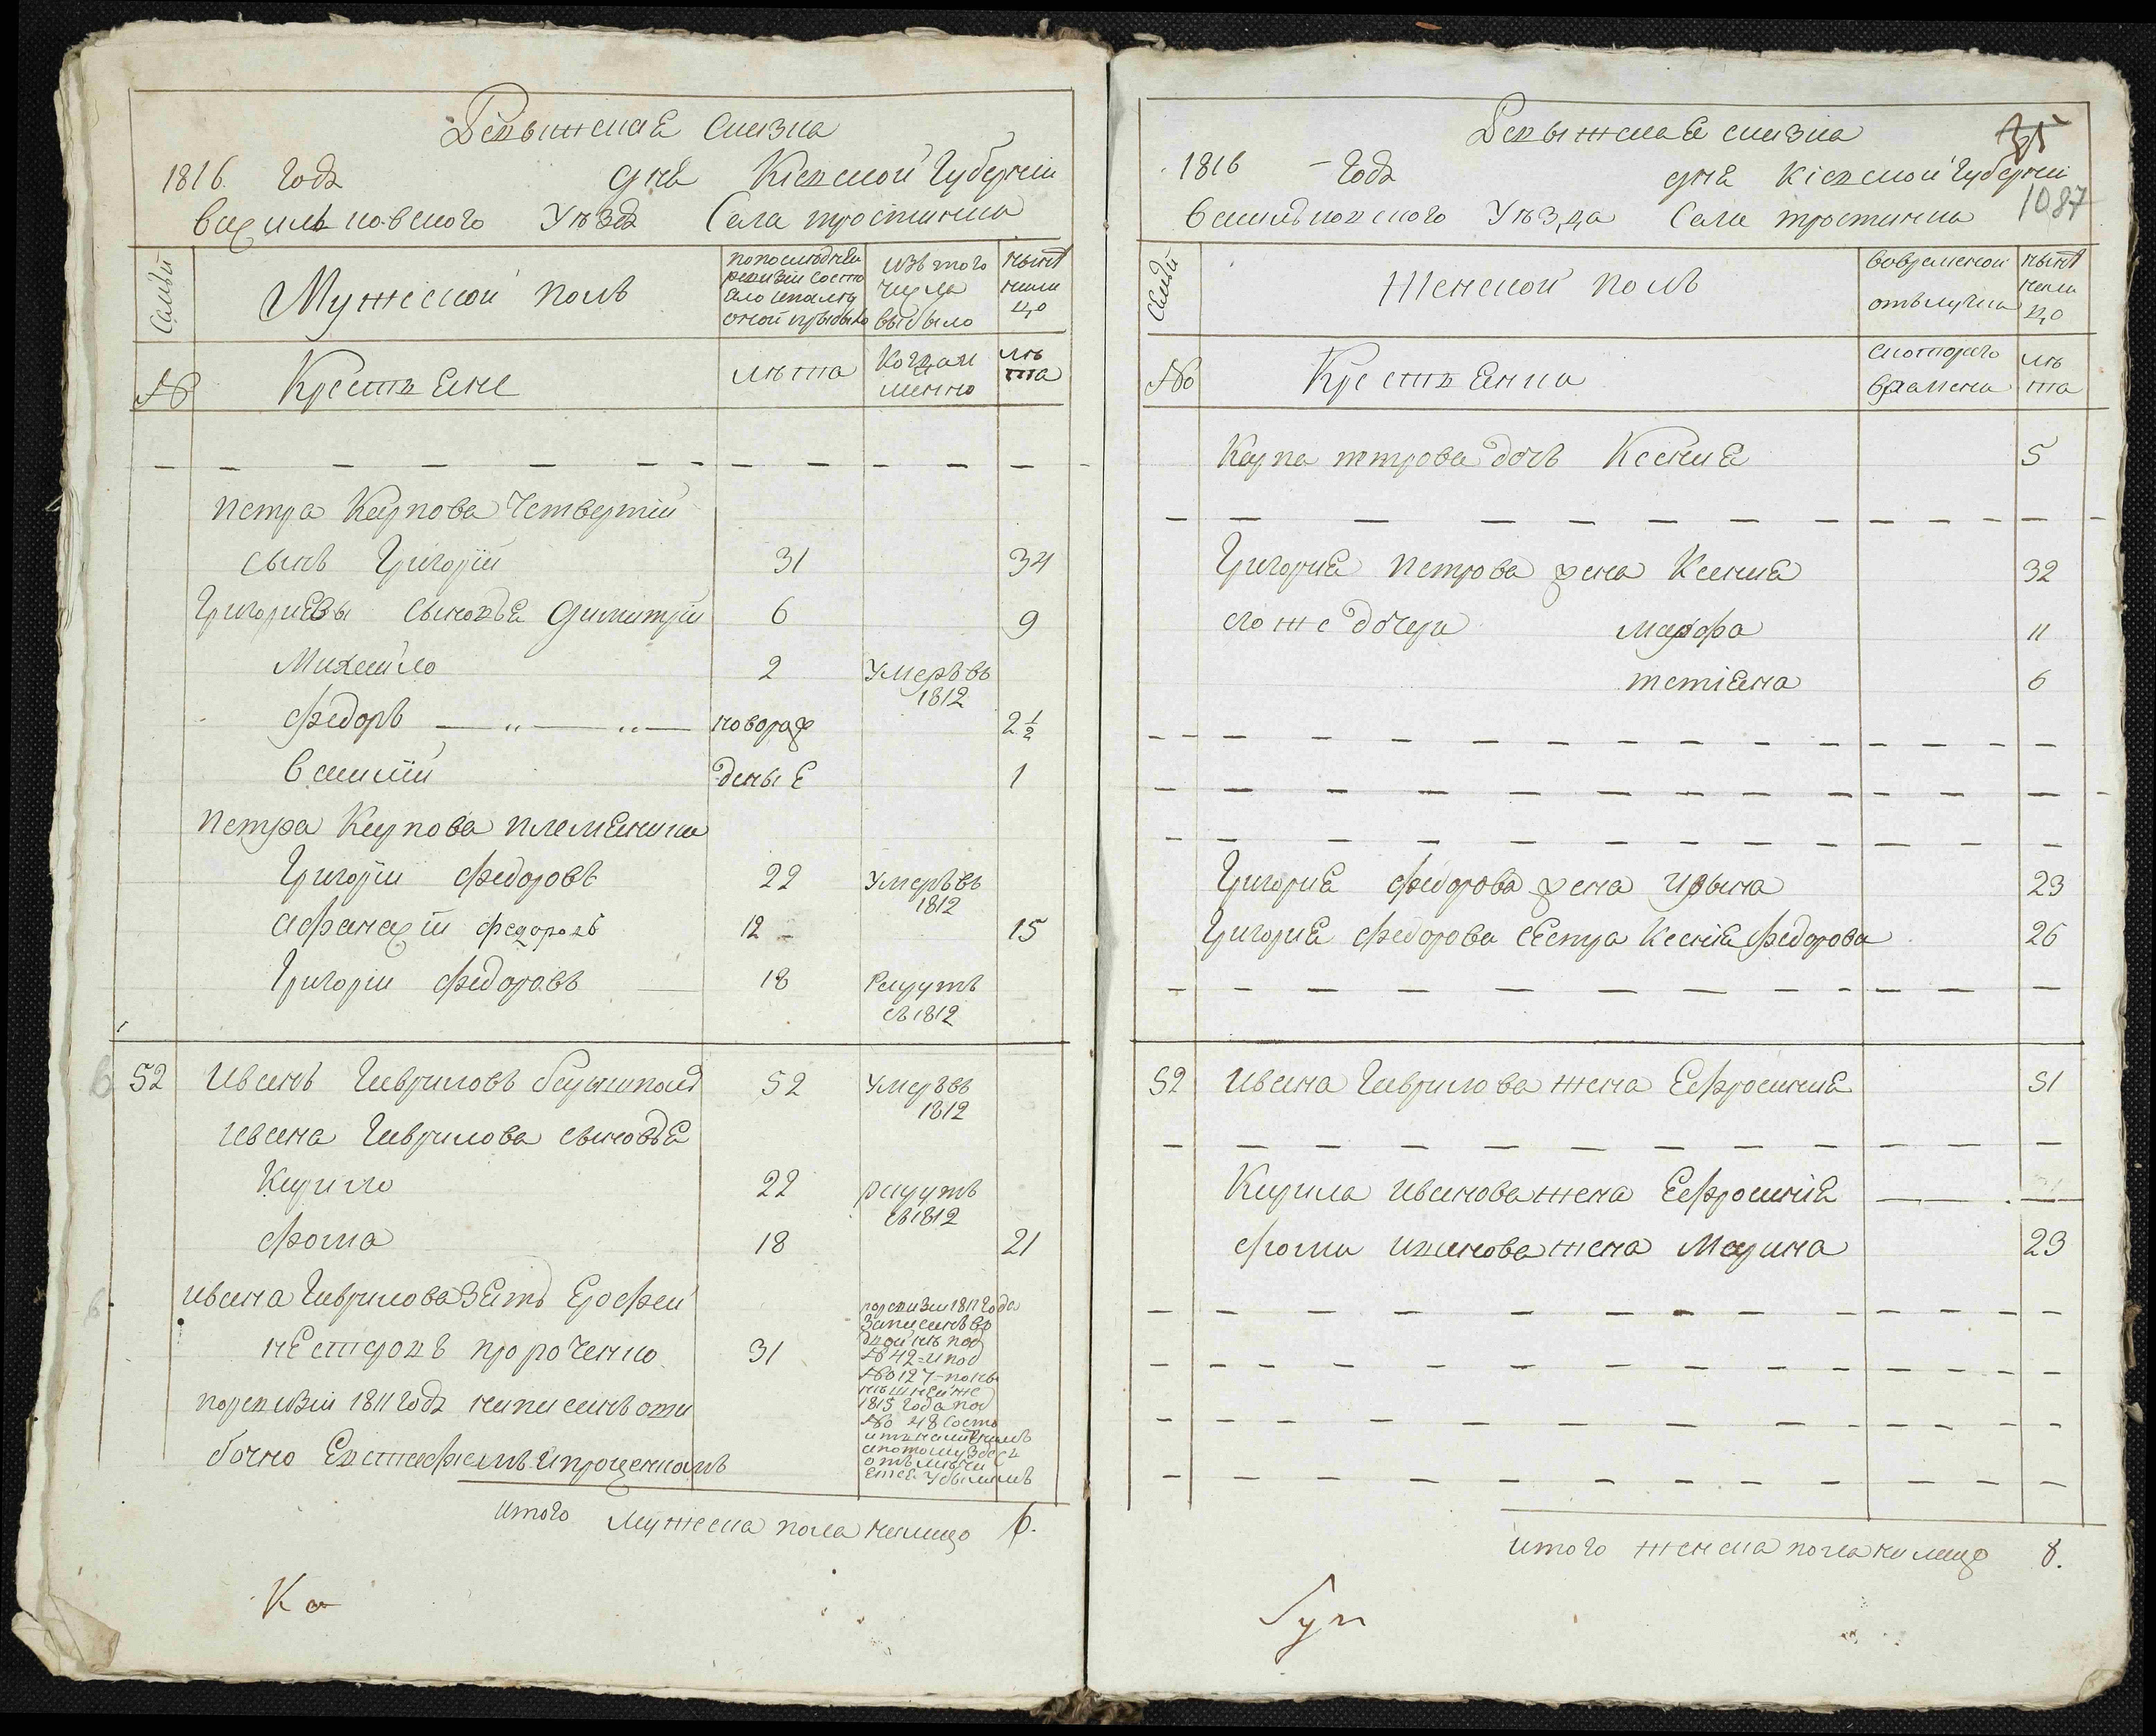 Ревыжская сказка
1816. Годა дня Кіевской Губерніи
Васильковского Уѣзда Села тростинки
Семьи
Мужеской полъ
по последней ревизіи состо яло и после оной прибыло
изъ того числа выбыло
нынѣ на ли цо
№
Крестьяне
лѣта
Когда и менно
лѣ та
Петра Карпова Четвертій
сынъ Григорій 31 34
Григориевы сыновья Димитрій 6 9
Михайло 2 Умеръ въ 1812
Федоръ — „ — „ — новораж 2 1/2
Василій деные 1
Петра Карпова племеника
Григорій Федоровъ 22 Умеръ въ 1812
Афанасій Федоровъ 12 – 15
Григорій Федоровъ 18 Рекрутъ съ 1812
52 Иванъ Гавриловъ 52 Умеръ въ 1812
Ивана Гаврилова сыновья
Кирило 22 рекрутъ съ 1812
Фома 18 21
Ивана Гаврилова Зеть Ерофей
Нестеровъ 31
по ревизіи 1811 года записанъ въ двойнѣ под № 42 = и под № 127 – по нынѣшней же 1815 года под № 48 состоитъ а потому здесь
по ревизіи 1811 Года написанъ оши
бочно Евстафіемъ
итого мужеска пола налицо 6.
Ка
Ревыжская сказка
35
1816 – Года дня Кіевской Губерніи
1087
Васильковского Уѣзда Села тростинка
Семьи
Женской полъ
во временной отълучка
нынѣ на ли цо
№
Крестьянка
с которого времени
лѣ та
Карпа петрова дочь Ксения 5
Григория Петрова жена Ксения 32
его же дочери марфа 11
тетіена 6
Григория Федорова жена Ирына 23
Григория Федорова сестра Ксенія Федорова 26
52 Ивана Гаврилова жена Ефросиния 51
Кирила Иванова жена Ефросинія
Фомы Иванова жена Марина 23
итого женска пола на лицо 8.